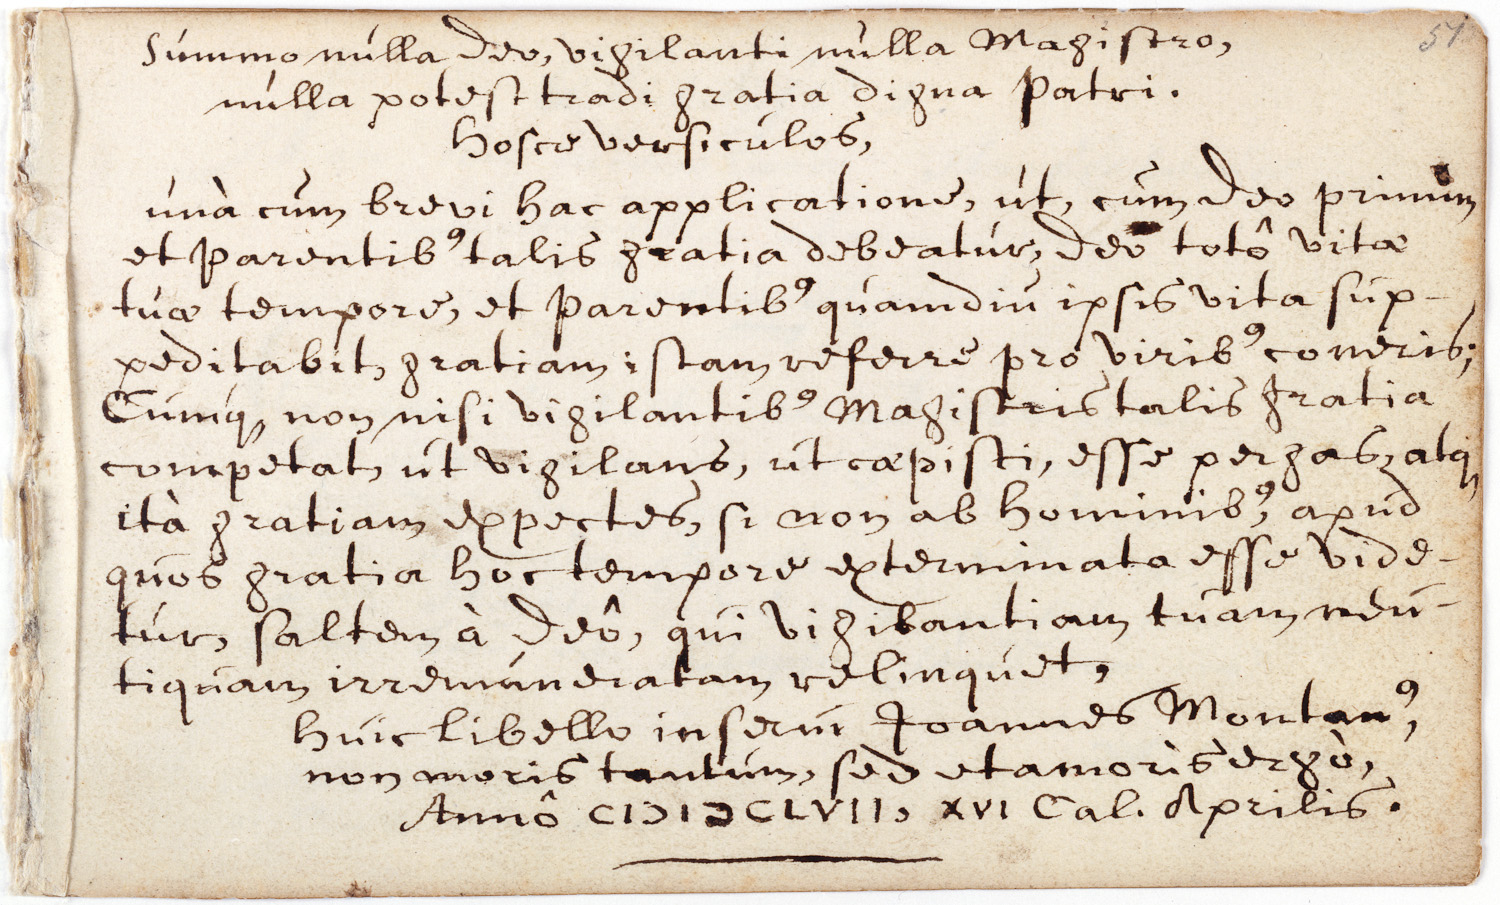 51
Summo nulla Deo, vigilanti nulla Magistro,
nulla potest tradi gratia digna Patri.
Hosce versiculos,
unà cum brevi hac applicatione, ut, cum Deo primùm
et Parentibꝰ talis gratia debeatur, Deo totô vitæ
tuæ tempore, et Parentibꝰ quamdiu ipsis vita sup-
peditabit, gratiam istam referre pro viribꝰ coneris;
Cumq, non nisi vigilantibꝰ Magistris talis gratia
competat, ut vigilans, ut cæpisti, esse pergas, atq
ità gratiam expectes, si non ab hominibꝰ, apud
quos gratia hoc tempore exterminata esse vide-
tur, saltem à Deô, qui vigilantiam tuam neu-
tiquam irremuneratam relinquet,
huic libello inserui Joannes Montanꝰ,
non moris tantum, sed et amoris ergò,
Annô CIƆIƆCLVII, XVI Cal. Aprilis.